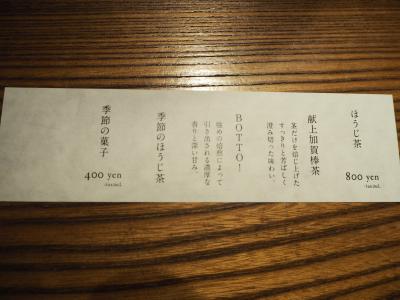 ほうじ茶
800 yen
献上加賀棒茶
茎だけを焙じ上げた
すっきりと芳ばしく
澄み切った味わい。
BOTTO!
強めの焙煎によって
引き出される濃厚な
香りと深い甘み。
季節のほうじ茶
季節の菓子
400 yen